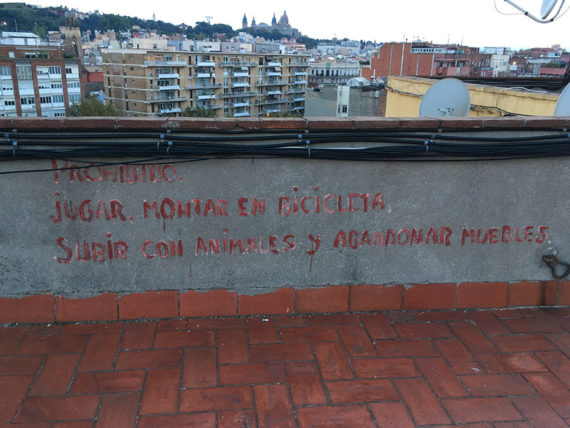 PROHIBIDO.
JUGAR. MONTAR EN BICICLETA.
SUBIR CON ANIMALES Y ABANDONAR MUEBLES.